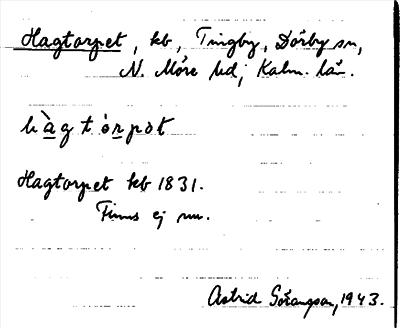 Hagtorpet, kb, Tingby, Dörby sn,
N. Möre hd; Kalm. län.
hàgtòrpət
Hagtorpet kb 1831.
Finns ej nu.
Astrid Göransson, 1943.